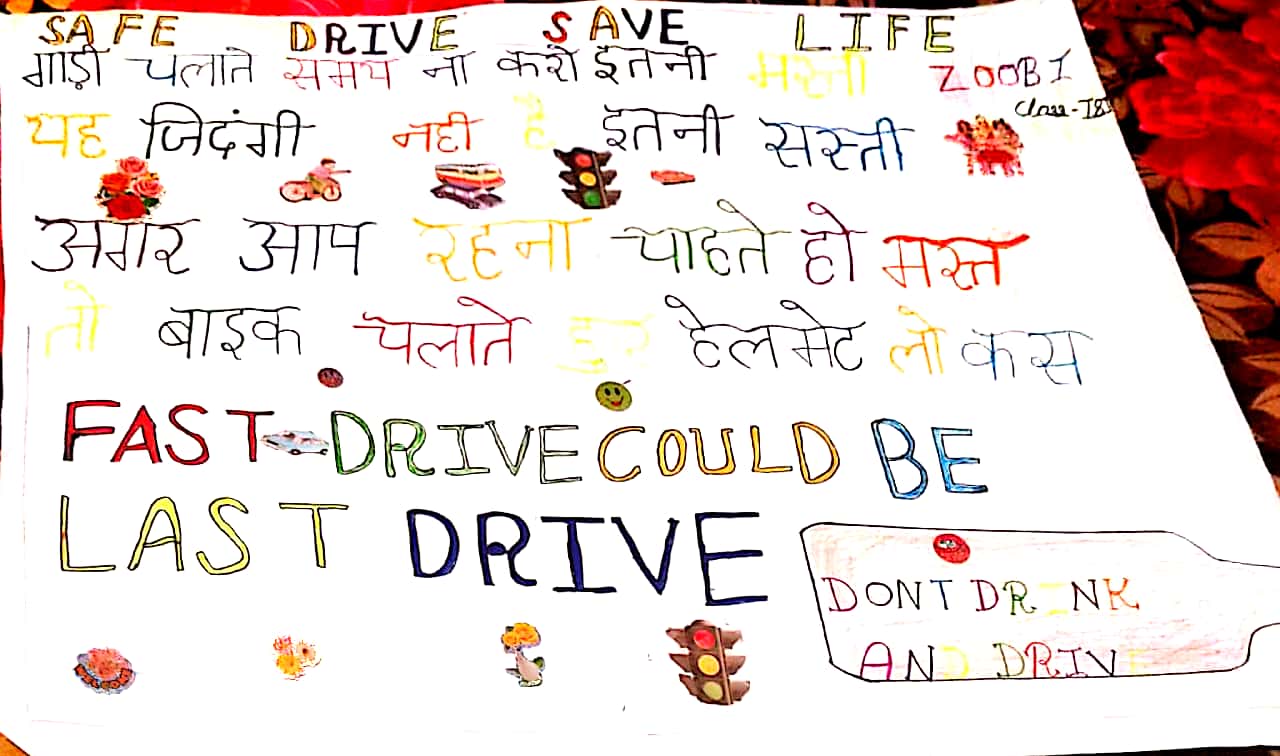 SAFE DRIVE SAVE LIFE
गाड़ी चलाते समय ना करो इतनी मस्ती
ZOOBI
यह जिदंगी नही है इतनी सस्ती
अगर आप रहना चाहते हो मस्त
तो बाइक चलाते हुए हेलमेट लो कस
FAST DRIVE COULD BE
LAST DRIVE
DONT DRINK
AND DRIVE